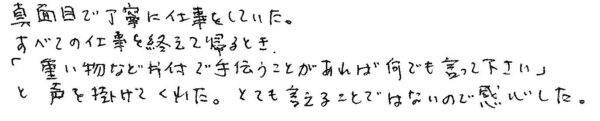 真面目で丁寧に仕事をしていた。
すべての仕事を終えて帰るとき、
「重い物など片付で手伝うことがあれば何でも言って下さい」
と声を掛けてくれた。とても言えることではないので感心した。